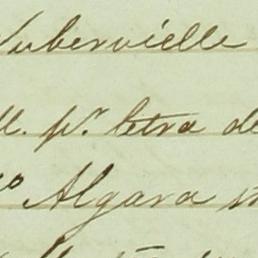 Nubervielle
ll. pr letra de
o Algara